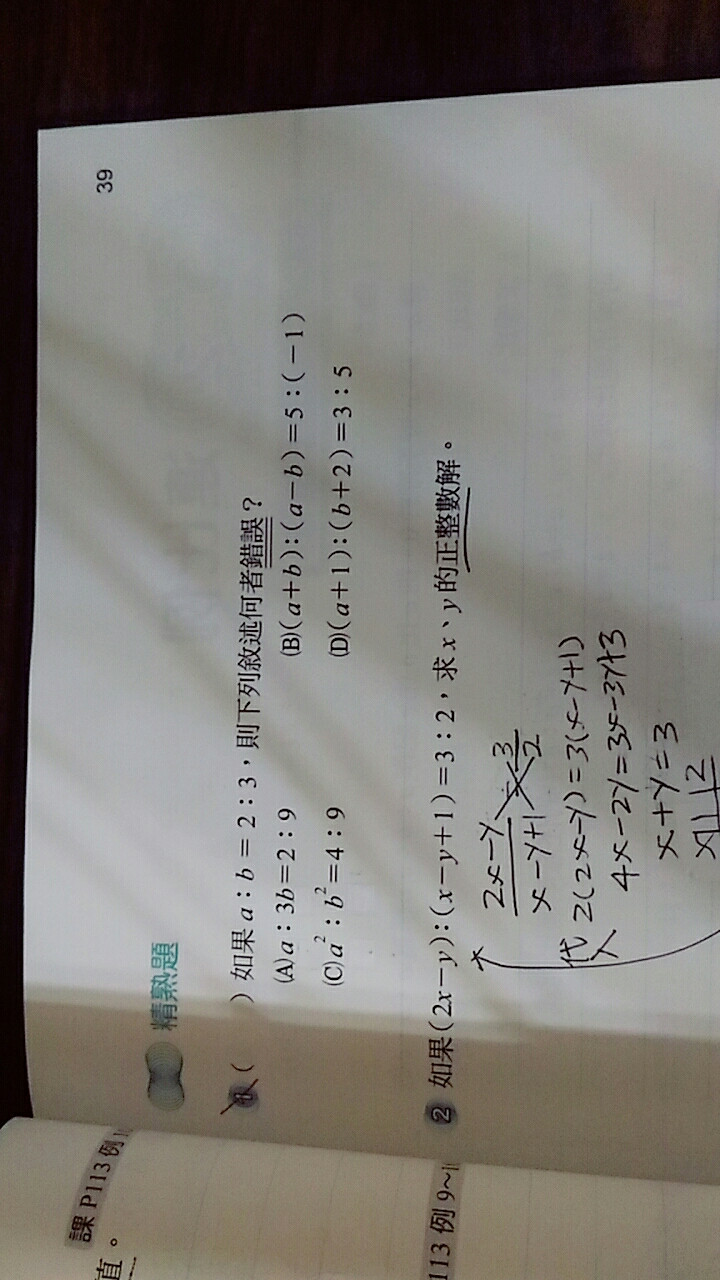 課 P113 例 1
值。
精熟題
1 (  ) 如果 a:b=2:3,則下列敘述何者錯誤?
(A) a:3b=2:9 (B) (a+b):(a-b)=5:(-1)
(C) a²:b²=4:9 (D) (a+1):(b+2)=3:5
113 例 9~1
2 如果(2x-y):(x-y+1)=3:2,求 x、y 的正整數解。
2x-y / x-y+1 3/2
代入 2(2x-y)=3(x-y+1)
4x-2y=3x-3y+3
x+y=3
x 1 2
39